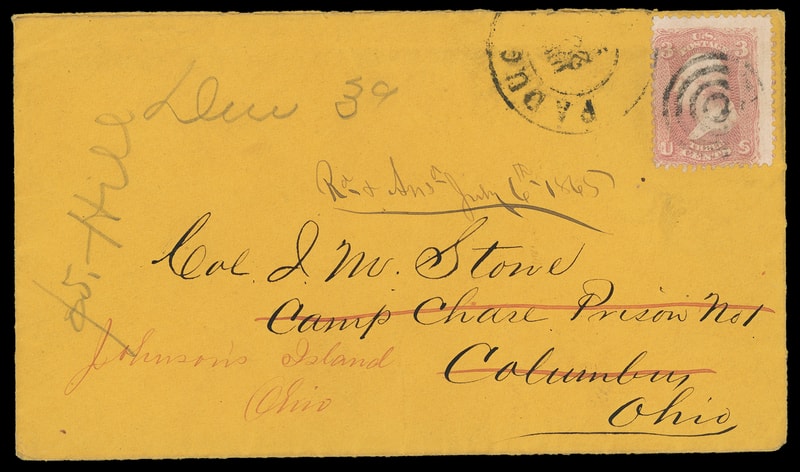 PADUC
U.S.
POSTAGE
3 3
THREE
U CENTS S
Due 3c
Rec & Ansd July 6th 1865
Col. J. M. Stone
Camp Chase Prison No 1
Columbus,
Ohio
Johnson's Island
Ohio
Hill